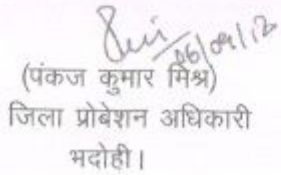 06/09/12
(पंकज कुमार मिश्र)
जिला प्रोबेशन अधिकारी
भदोही।